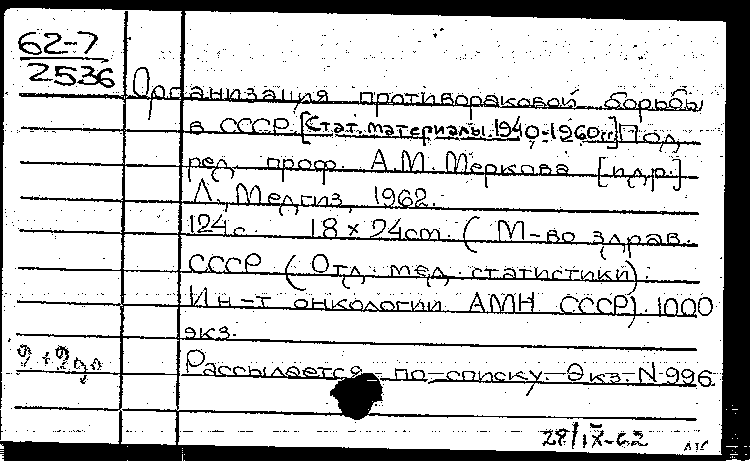 62-7
2536
Организация противораковой борьбы
в СССР. [Стат. материалы. 1940-1960гг.] Под
ред. проф. А.М. Меркова [и др.]
Л., Медгиз, 1962.
124с. 18 × 24cm. (М-во здрав.
СССР (Отд. мед. статистики).
Ин-т онкологии АМН СССР). 1000
экз.
Рассылается по списку. Экз. N 996
28/IX-62